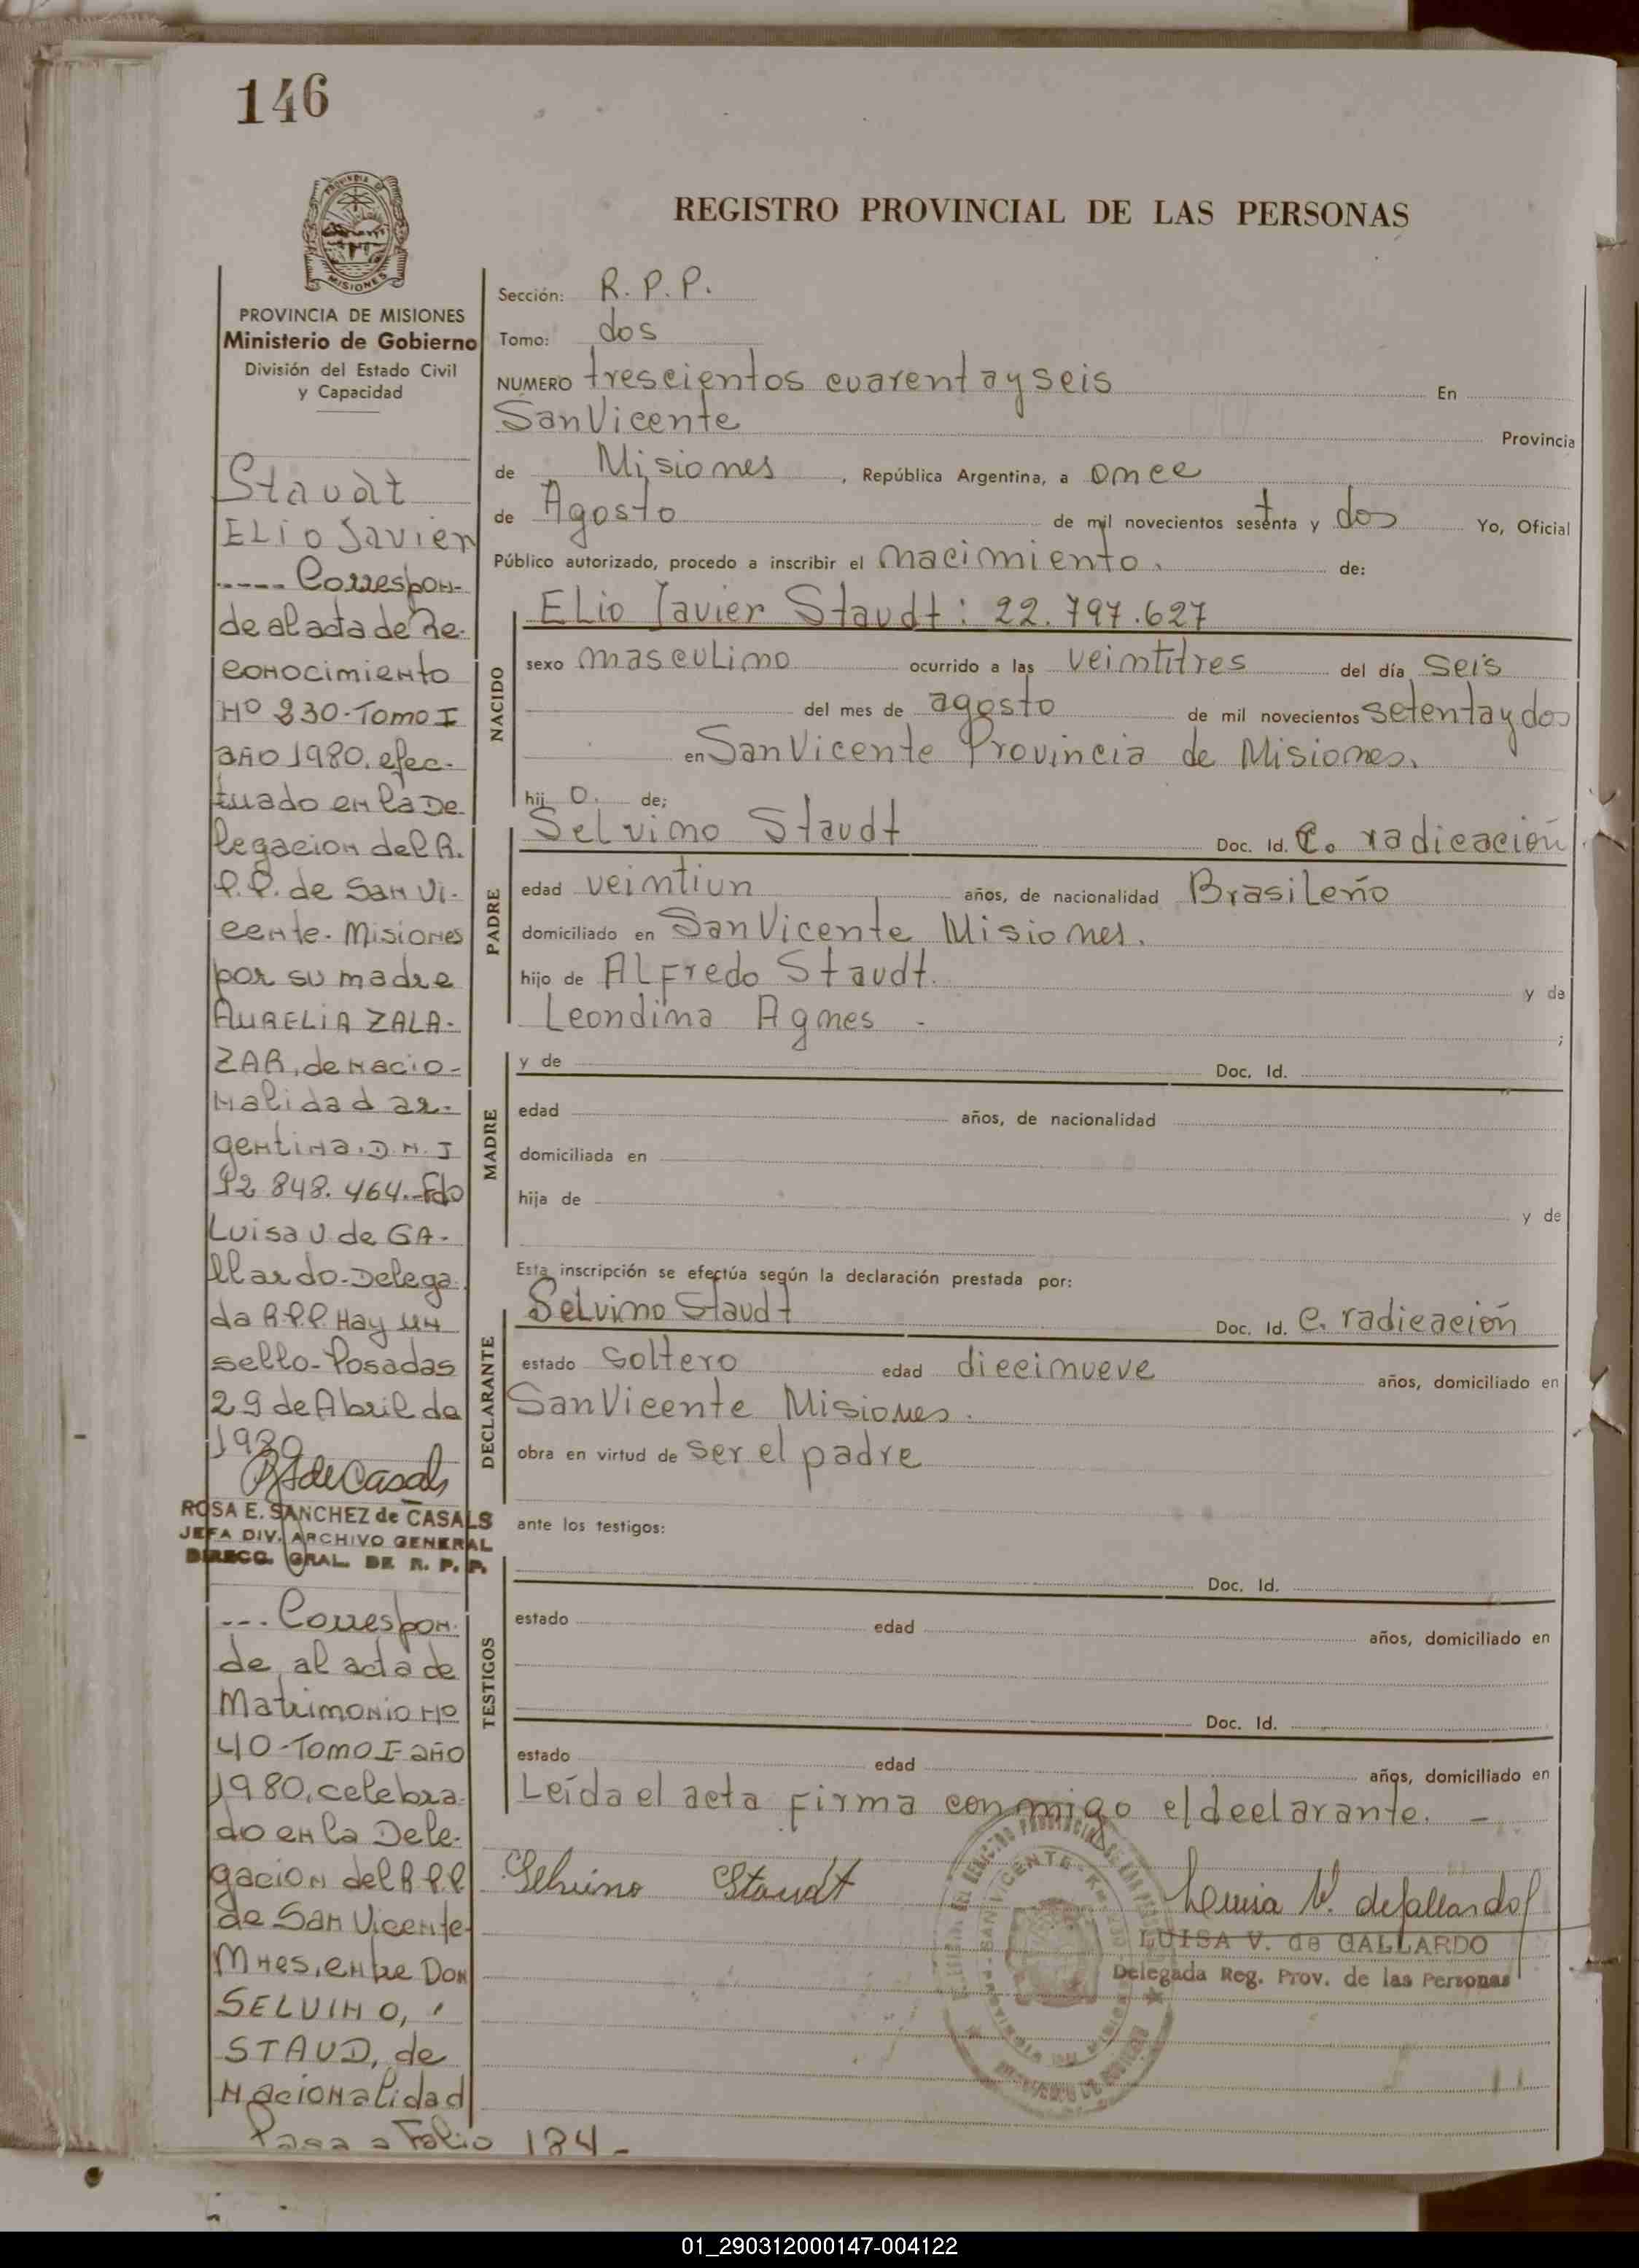 146
REGISTRO PROVINCIAL DE LAS PERSONAS
MISIONES
PROVINCIA DE MISIONES
Ministerio de Gobierno
División del Estado Civil
y Capacidad
Staudt
ELio Javier
----- Correspon-
de al acta de Re-
conocimiento
Nº 230-Tomo I
año 1980, efec-
tuado en la De
legacion del R.
P.P. de San Vi-
cente- Misiones
por su madre
AURELIA ZALA-
ZAR, de nacio-
nalidad ar-
gentina, D.N.I
12 848.464.-Fdo
Luisa V. de GA-
llardo-Delega
da R.P.P. Hay un
sello-Posadas
29 de Abril de
1980
ROSA E. SANCHEZ de CASALS
JEFA DIV. ARCHIVO GENERAL
DIRECC. GRAL. DE R. P. P.
--- Correspon-
de al acta de
Matrimonio Nº
40-Tomo I-año
1980, celebra-
do en la Dele-
gacion del R.P.P
de San Vicente-
Mnes, entre Don
SELVINO,
STAUD, de
nacionalidad
Pasa a Folio 184-
Sección: R. P. P.
Tomo: dos
NUMERO trescientos cuarenta y seis En
San Vicente Provincia
de Misiones, República Argentina, a once
de Agosto de mil novecientos setenta y dos Yo, Oficial
Público autorizado, procedo a inscribir el nacimiento. de:
NACIDO
ELio Javier Staudt: 22.797.627
sexo masculino ocurrido a las veintitres del día seis
del mes de agosto de mil novecientos setenta y dos
en San Vicente Provincia de Misiones.
hij o. de;
PADRE
Selvino Staudt Doc. Id. C. radicación
edad veintiun años, de nacionalidad Brasileño
domiciliado en San Vicente Misiones.
hijo de ALFredo Staudt. y de
Leondina Agnes - ;
MADRE
y de Doc. Id.
edad años, de nacionalidad
domiciliada en
hija de y de
Esta inscripción se efectúa según la declaración prestada por:
DECLARANTE
Selvino Staudt Doc. Id. C. radicación
estado soltero edad diecinueve años, domiciliado en
San Vicente Misiones.
obra en virtud de ser el padre
ante los testigos:
TESTIGOS
Doc. Id.
estado edad años, domiciliado en
Doc. Id.
estado edad años, domiciliado en
Leída el acta Firma conmigo el declarante. -
Selvino Staudt
Luisa V. de Gallardo
LUISA V. de GALLARDO
Delegada Reg. Prov. de las Personas
01_290312000147-004122